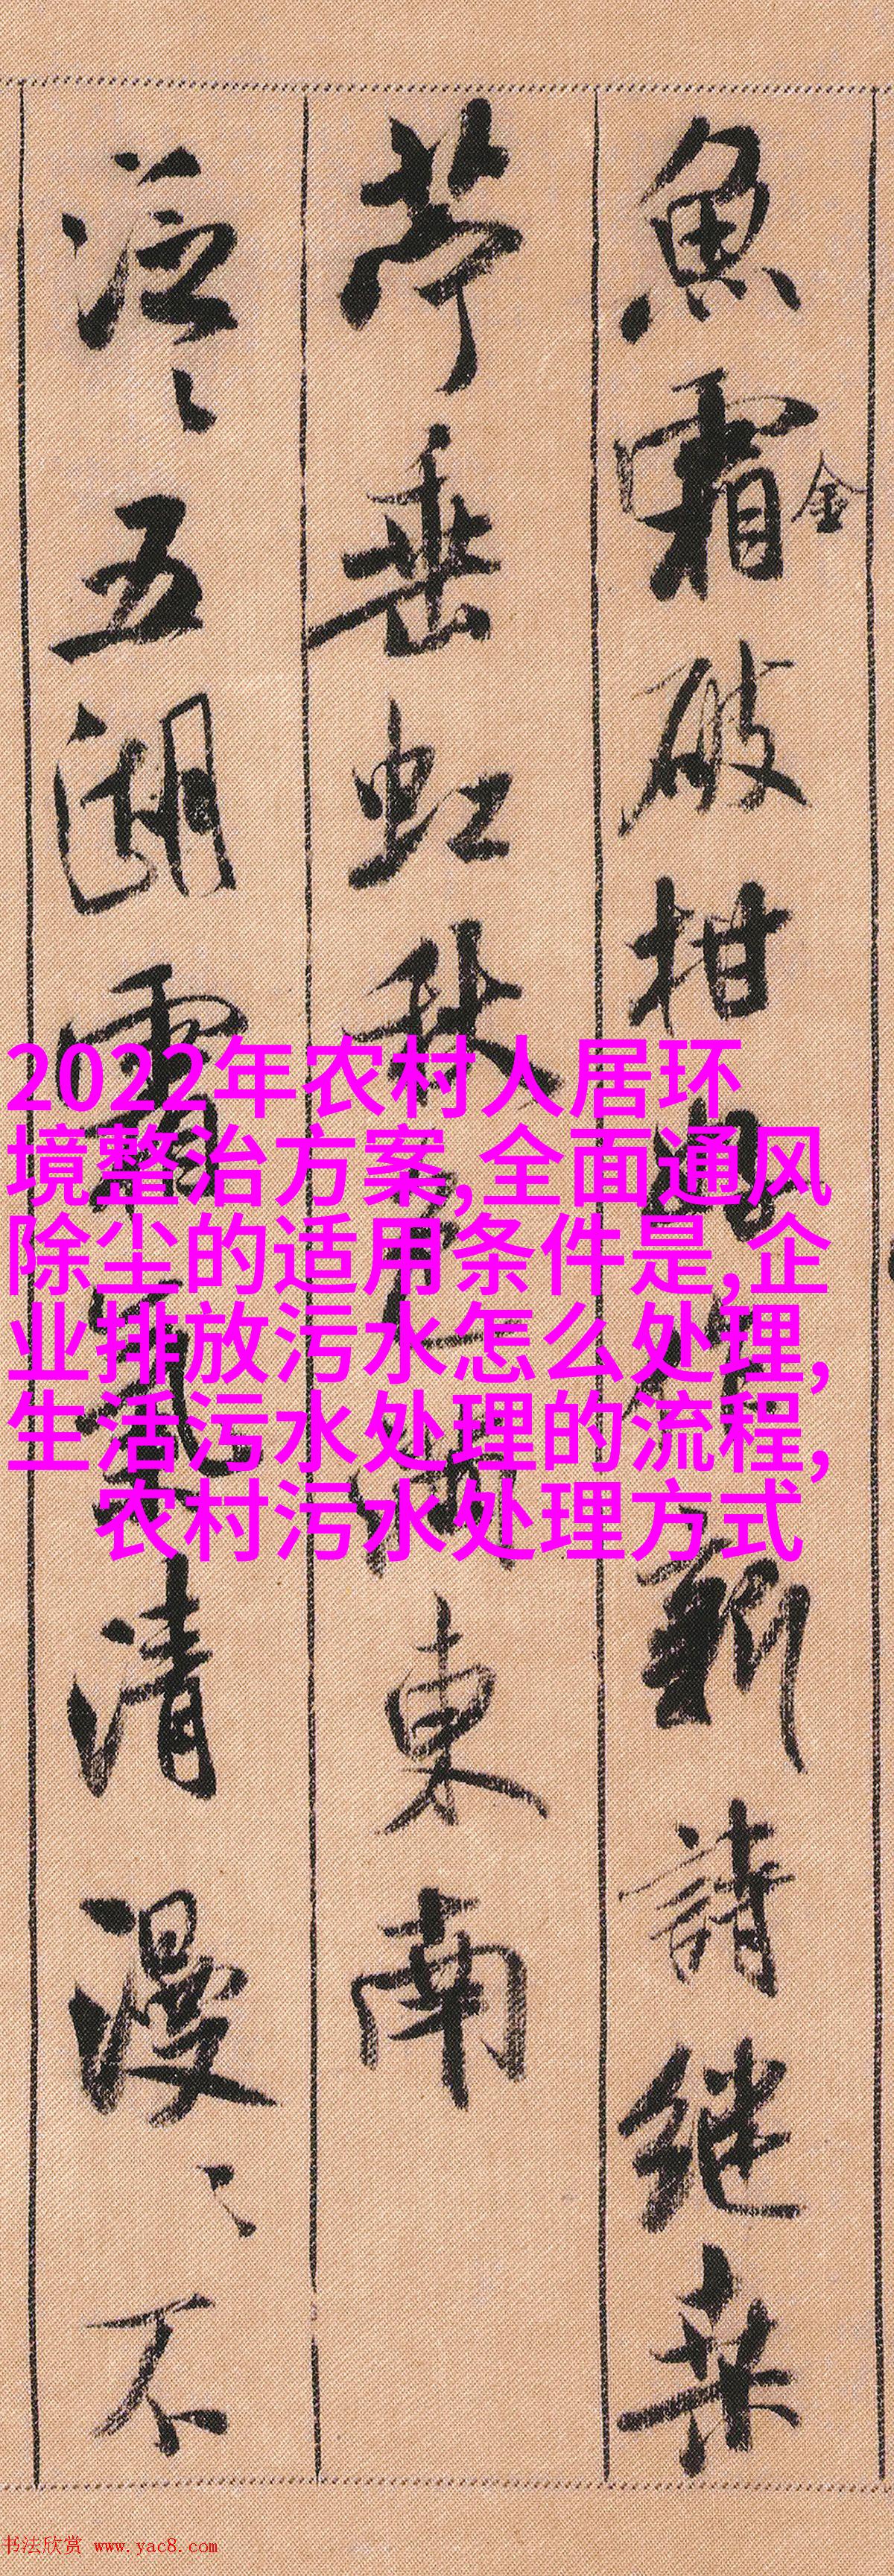 魚霜金破柑新詩継桒
苧垂虹秋東南
泛〻五湖霜氣清漫〻不
2022年农村人居环
境整治方案,全面通风
除尘的适用条件是,企
业排放污水怎么处理,
生活污水处理的流程,
农村污水处理方式
书法欣赏 www.yac8.com